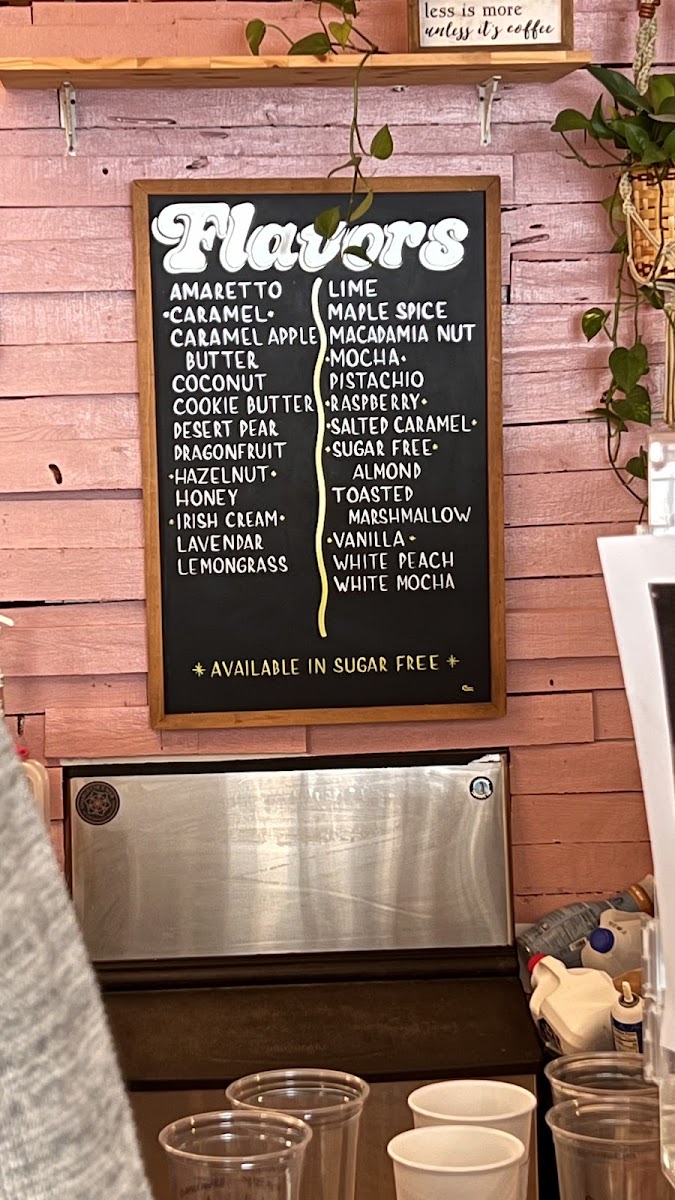 less is more
unless it's coffee
Flavors
AMARETTO
•CARAMEL•
CARAMEL APPLE
BUTTER
COCONUT
COOKIE BUTTER
DESERT PEAR
DRAGONFRUIT
•HAZELNUT•
HONEY
•IRISH CREAM•
LAVENDAR
LEMONGRASS
LIME
MAPLE SPICE
MACADAMIA NUT
•MOCHA•
PISTACHIO
•RASPBERRY•
•SALTED CARAMEL•
•SUGAR FREE•
ALMOND
TOASTED
MARSHMALLOW
•VANILLA•
WHITE PEACH
WHITE MOCHA
*AVAILABLE IN SUGAR FREE*